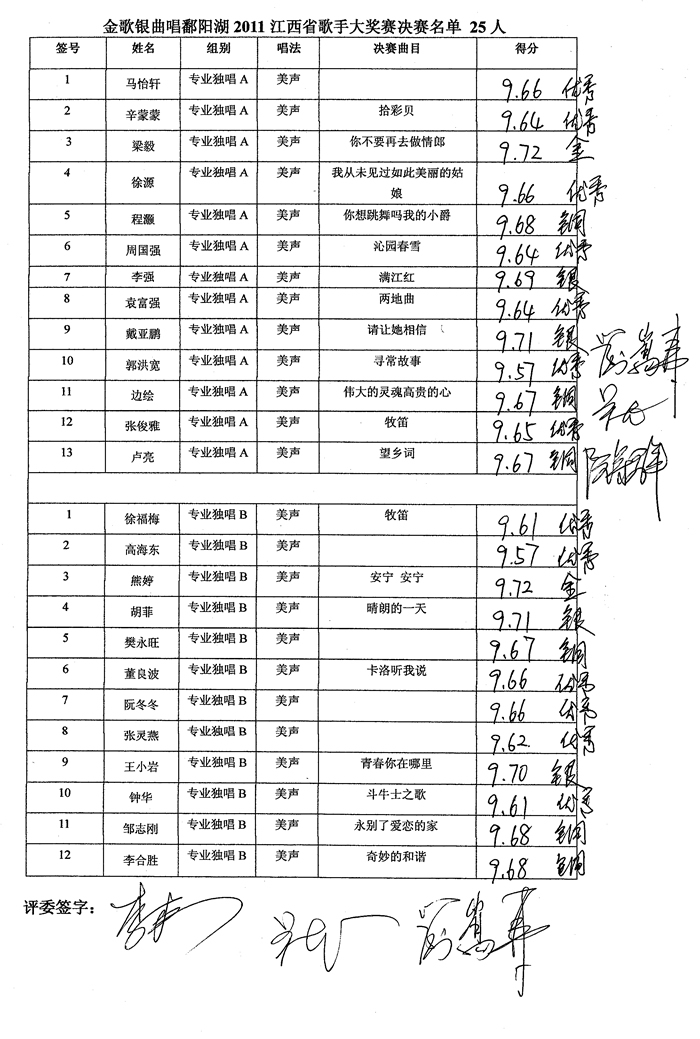 金歌银曲唱鄱阳湖 2011 江西省歌手大奖赛决赛名单 25 人
签号 姓名 组别 唱法 决赛曲目 得分
1 马怡轩 专业独唱 A 美声 9.66 优秀
2 辛蒙蒙 专业独唱 A 美声 拾彩贝 9.64 优秀
3 梁毅 专业独唱 A 美声 你不要再去做情郎 9.72 金
4 徐源 专业独唱 A 美声 我从未见过如此美丽的姑
娘 9.66 优秀
5 程灏 专业独唱 A 美声 你想跳舞吗我的小爵 9.68 铜
6 周国强 专业独唱 A 美声 沁园春雪 9.64 优秀
7 李强 专业独唱 A 美声 满江红 9.69 银
8 袁富强 专业独唱 A 美声 两地曲 9.64 优秀
9 戴亚鹏 专业独唱 A 美声 请让她相信 9.71 银
10 郭洪宽 专业独唱 A 美声 寻常故事 9.57 优秀
11 边绘 专业独唱 A 美声 伟大的灵魂高贵的心 9.67 铜
12 张俊雅 专业独唱 A 美声 牧笛 9.65 优秀
13 卢亮 专业独唱 A 美声 望乡词 9.67 铜
1 徐福梅 专业独唱 B 美声 牧笛 9.61 优秀
2 高海东 专业独唱 B 美声 9.57 优秀
3 熊婷 专业独唱 B 美声 安宁 安宁 9.72 金
4 胡菲 专业独唱 B 美声 晴朗的一天 9.71 银
5 樊永旺 专业独唱 B 美声 9.67 铜
6 董良波 专业独唱 B 美声 卡洛听我说 9.66 优秀
7 阮冬冬 专业独唱 B 美声 9.66 优秀
8 张灵燕 专业独唱 B 美声 9.62 优秀
9 王小岩 专业独唱 B 美声 青春你在哪里 9.70 银
10 钟华 专业独唱 B 美声 斗牛士之歌 9.61 优秀
11 邹志刚 专业独唱 B 美声 永别了爱恋的家 9.68 铜
12 李合胜 专业独唱 B 美声 奇妙的和谐 9.68 铜
评委签字：